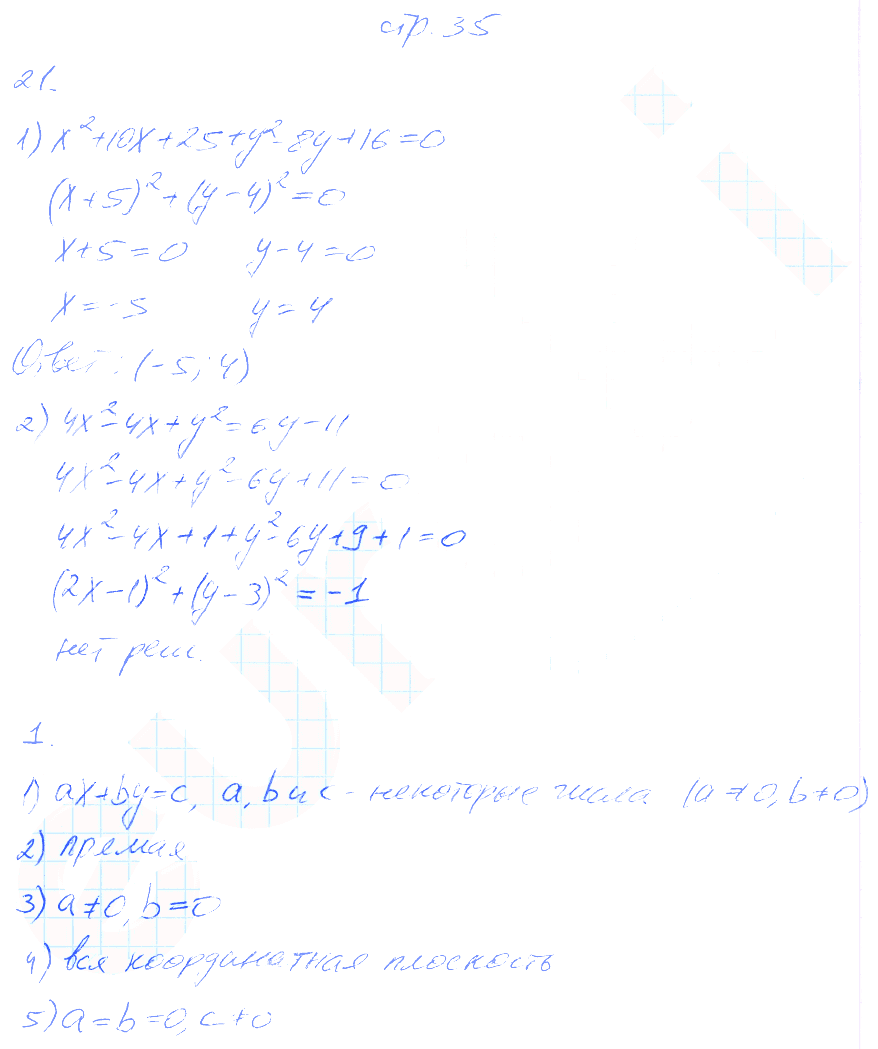 стр. 35
21.
1) x²+10x+25+y²-8y+16=0
(x+5)²+(y-4)²=0
x+5=0 y-4=0
x=-5 y=4
Ответ: (-5; 4)
2) 4x²-4x+y²=6y-11
4x²-4x+y²-6y+11=0
4x²-4x+1+y²-6y+9+1=0
(2x-1)²+(y-3)²=-1
нет реш.
1.
1) ax+by=c, a, b и c - некоторые числа (a≠0, b≠0)
2) прямая
3) a≠0, b=0
4) вся координатная плоскость
5) a=b=0, c≠0